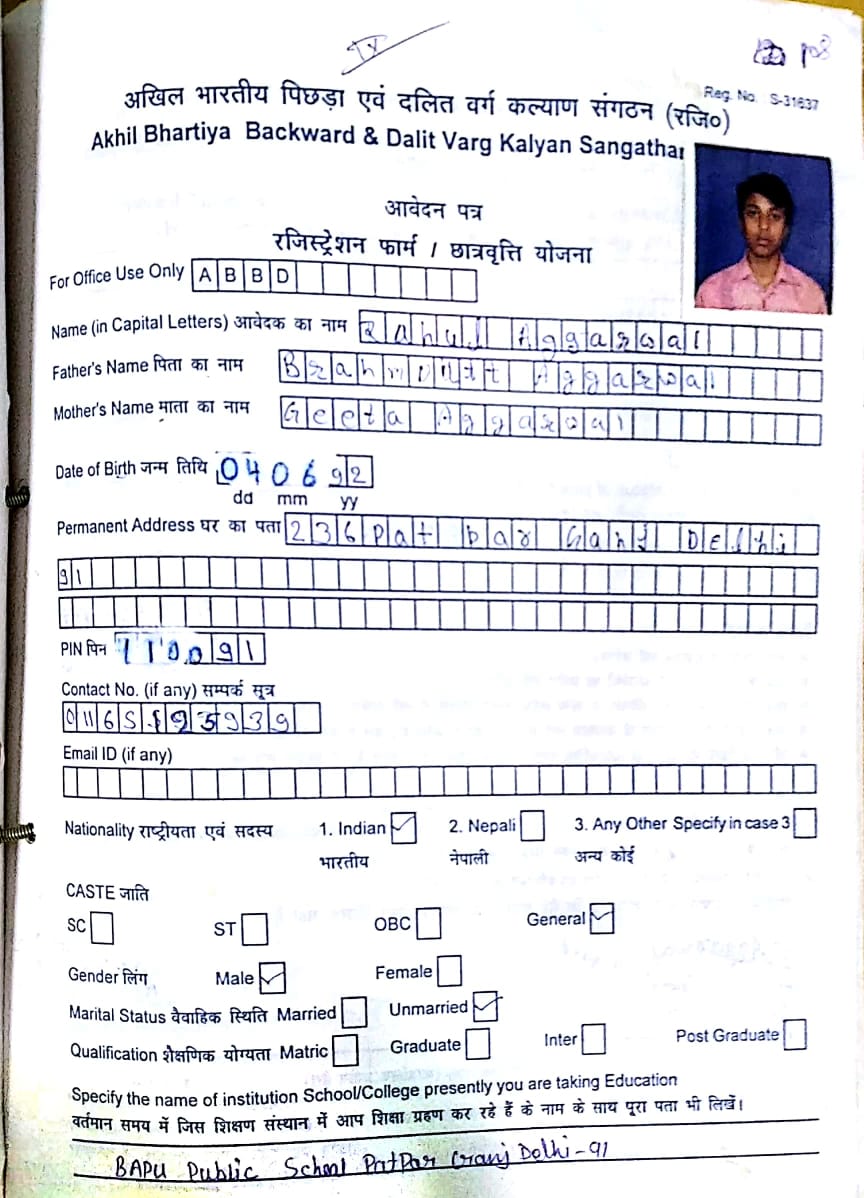 IX
Reg. No. S-31637
अखिल भारतीय पिछड़ा एवं दलित वर्ग कल्याण संगठन (रजि०)
Akhil Bhartiya Backward & Dalit Varg Kalyan Sangathan
आवेदन पत्र
रजिस्ट्रेशन फार्म / छात्रवृत्ति योजना
For Office Use Only A B B D
Name (in Capital Letters) आवेदक का नाम Rahul Aggarwal
Father's Name पिता का नाम Aggarwal
Mother's Name माता का नाम Geeta Aggarwal
Date of Birth जन्म तिथि 040692
dd mm yy
Permanent Address घर का पता 236 Pat par Ganj DElhi
91
PIN पिन 110091
Contact No. (if any) सम्पर्क सूत्र
Email ID (if any)
Nationality राष्ट्रीयता एवं सदस्य 1. Indian 2. Nepali 3. Any Other Specify in case 3
भारतीय नेपाली अन्य कोई
CASTE जाति
SC ST OBC General
Gender लिंग Male Female
Marital Status वैवाहिक स्थिति Married Unmarried
Qualification शैक्षणिक योग्यता Matric Graduate Inter Post Graduate
Specify the name of institution School/College presently you are taking Education
वर्तमान समय में जिस शिक्षण संस्थान में आप शिक्षा ग्रहण कर रहे हैं के नाम के साथ पूरा पता भी लिखें।
BAPU Public School PatPar Ganj Delhi-91